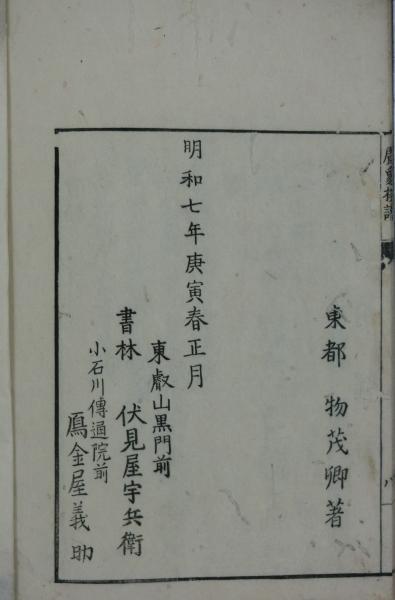 廣象棋譜
八
東都 物茂卿著
明和七年庚寅春正月
東叡山黒門前
書林 伏見屋宇兵衛
小石川傳通院前
鴈金屋義助